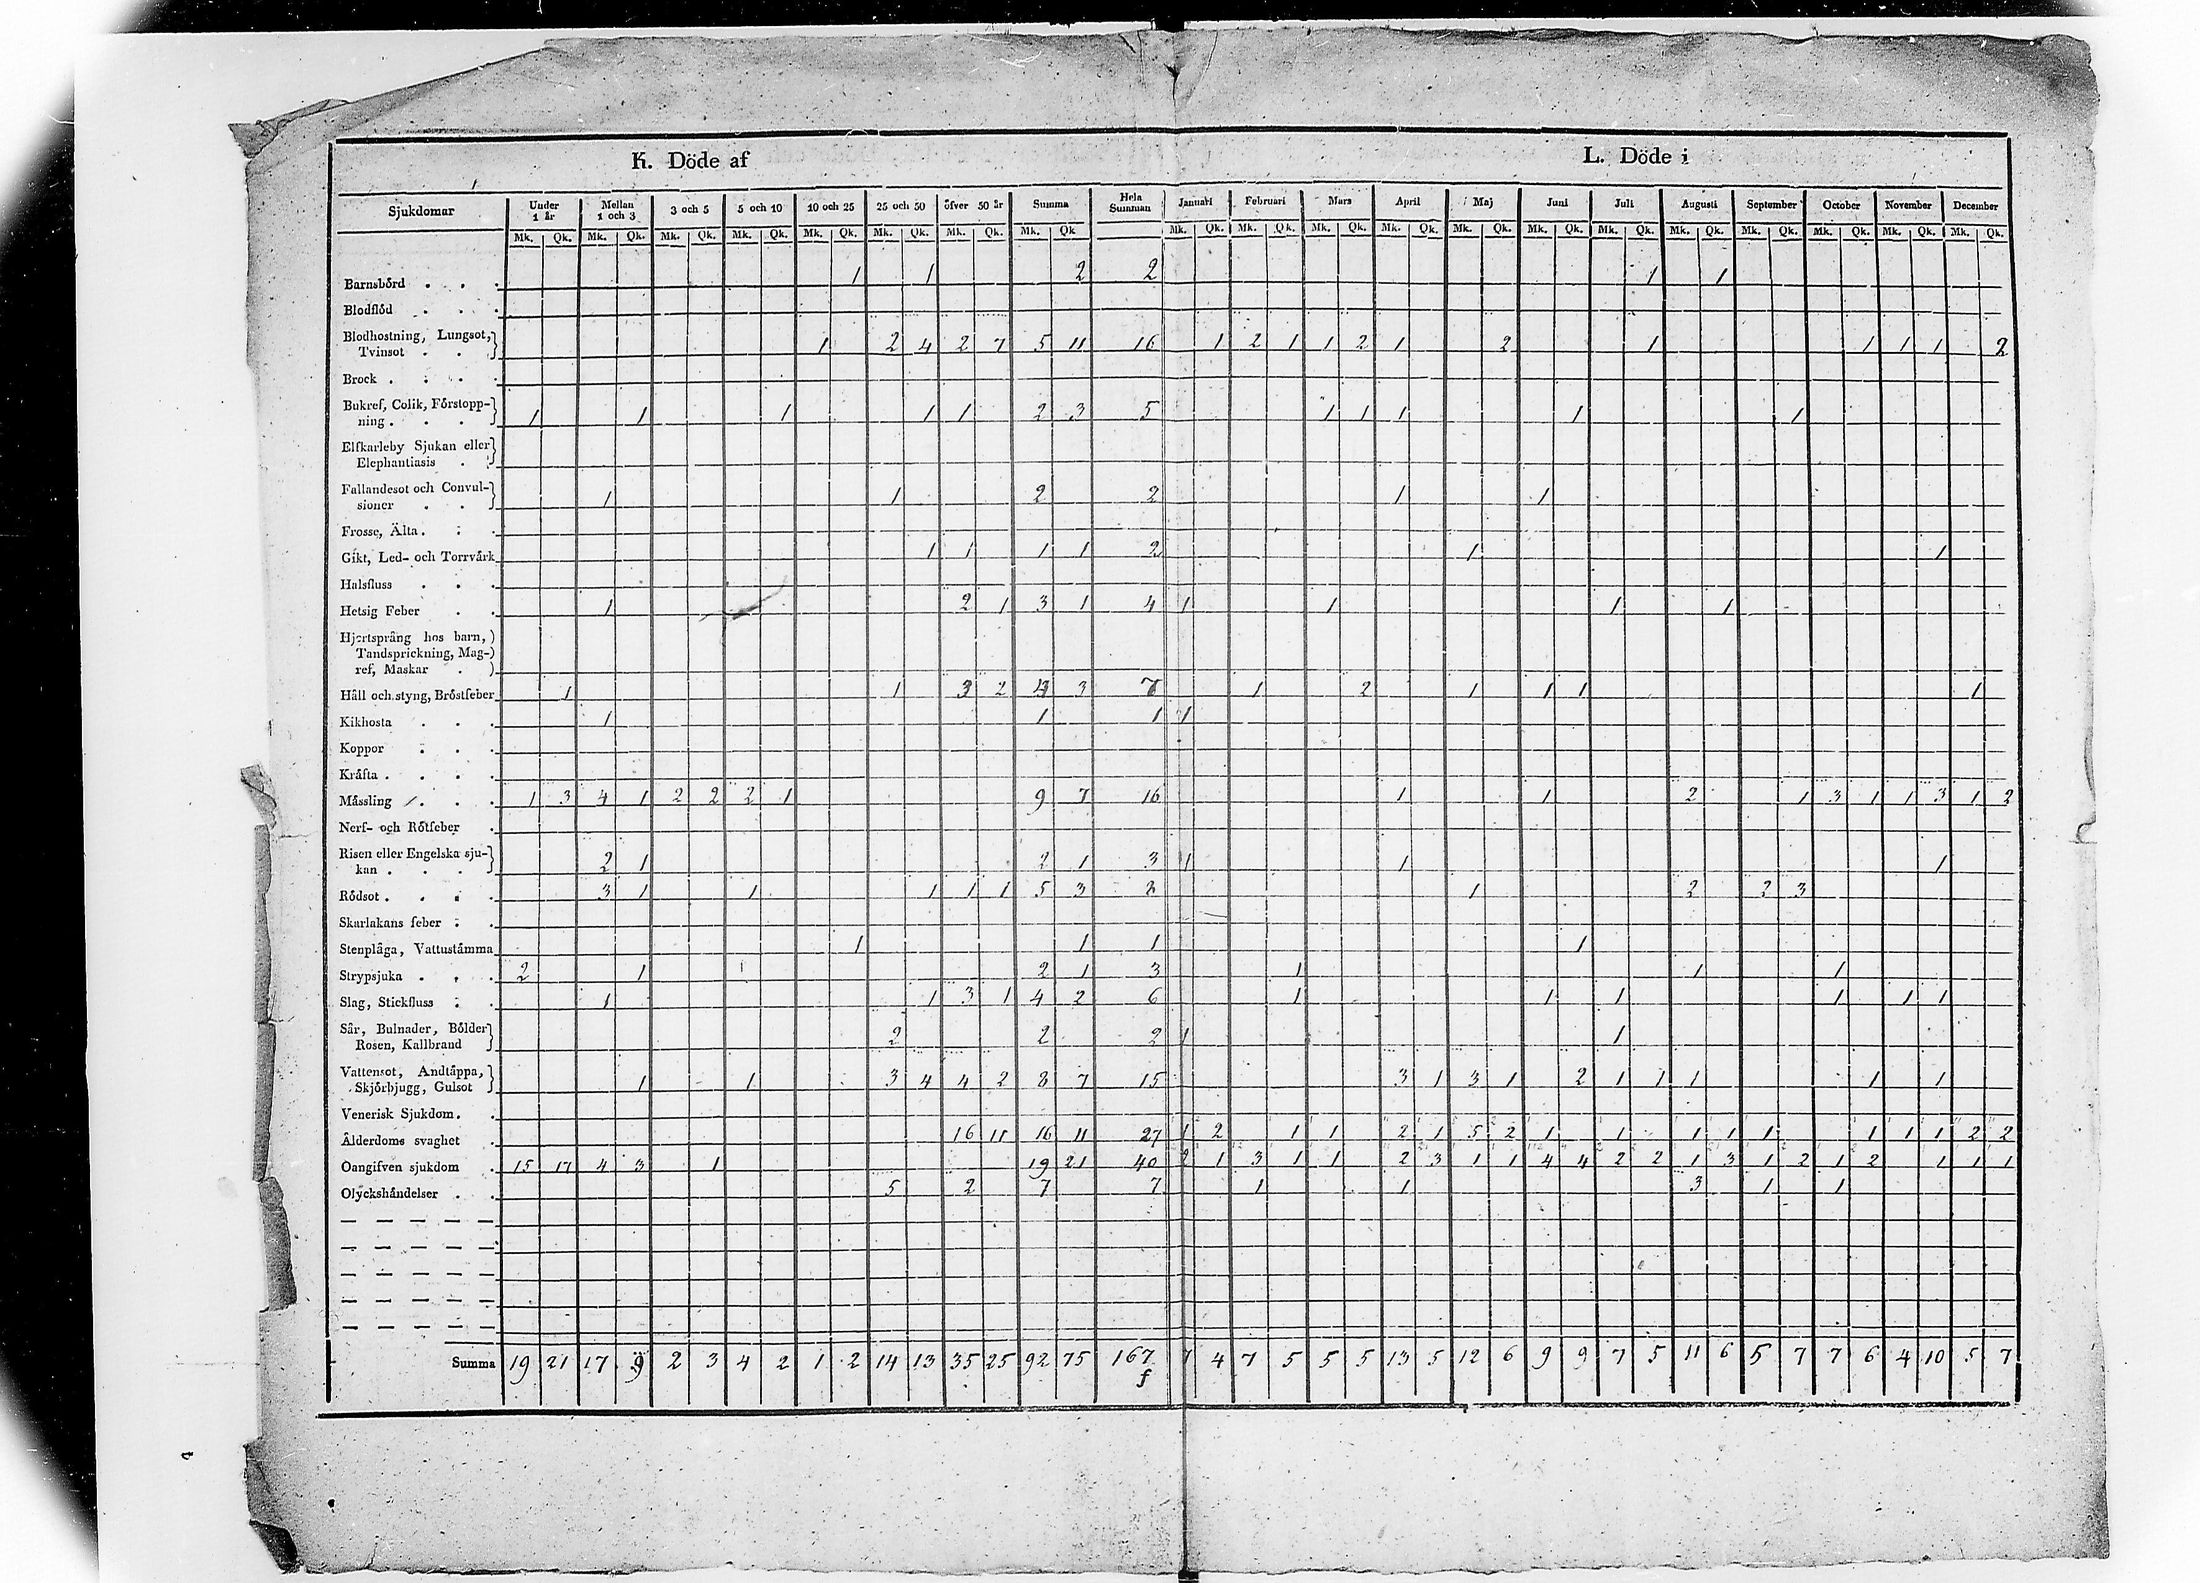 K. Döde af L. Döde i
Sjukdomar Under 1 år Mellan 1 och 3 3 och 5 5 och 10 10 och 25 25 och 50 öfver 50 år Summa Hela Summan Januari Februari Mars April Maj Juni Juli Augusti September October November December
Mk. Qk. Mk. Qk. Mk. Qk. Mk. Qk. Mk. Qk. Mk. Qk. Mk. Qk. Mk. Qk Mk. Qk. Mk. Qk. Mk. Qk. Mk. Qk. Mk. Qk. Mk. Qk. Mk. Qk. Mk. Qk. Mk. Qk. Mk. Qk. Mk. Qk. Mk. Qk.
Barnsbörd . . . 1 1 2 2 1 1
Blodflöd . . .
Blodhostning, Lungsot,
Tvinsot . . 1 2 4 2 7 5 11 16 1 2 1 1 2 1 2 1 1 1 1 2
Brock . . . .
Bukref, Colik, Förstopp-
ning . . . 1 1 1 1 1 2 3 5 1 1 1 1 1
Elfkarleby Sjukan eller
Elephantiasis .
Fallandesot och Convul-
sioner . . 1 1 2 2 1 1
Frosse, Älta . . .
Gikt, Led- och Torrvärk 1 1 1 1 2 1 1
Halsfluss . . .
Hetsig Feber . . 1 2 1 3 1 4 1 1 1 1
Hjertsprång hos barn,
Tandsprickning, Mag-
ref, Maskar .
Håll och styng, Bröstfeber 1 1 3 2 4 3 7 1 2 1 1 1 1
Kikhosta . . . 1 1 1 1
Koppor . . .
Kräfta . . . .
Mässling . . . 1 3 4 1 2 2 2 1 9 7 16 1 1 2 1 3 1 1 3 1 2
Nerf- och Rötfeber .
Risen eller Engelska sju-
kan . . . 2 1 2 1 3 1 1 1
Rödsot . . . . 3 1 1 1 1 1 5 3 8 1 2 2 3
Skarlakans feber . .
Stenplåga, Vattustämma 1 1 1 1
Strypsjuka . . . 2 1 2 1 3 1 1 1
Slag, Stickfluss . . 1 1 3 1 4 2 6 1 1 1 1 1 1
Sår, Bulnader, Bölder
Rosen, Kallbrand 2 2 2 1 1
Vattensot, Andtäppa,
Skjörbjugg, Gulsot 1 1 3 4 4 2 8 7 15 3 1 3 1 2 1 1 1 1 1
Venerisk Sjukdom . .
Ålderdoms svaghet . 16 11 16 11 27 1 2 1 1 2 1 5 2 1 1 1 1 1 1 1 1 2 2
Oangifven sjukdom . 15 17 4 3 1 19 21 40 2 1 3 1 1 2 3 1 1 4 4 2 2 1 3 1 2 1 2 1 1 1
Olyckshändelser . . 5 2 7 7 1 1 3 1 1
Summa 19 21 17 9 2 3 4 2 1 2 14 13 35 25 92 75 167 7 4 7 5 5 5 13 5 12 6 9 9 7 5 11 6 5 7 7 6 4 10 5 7